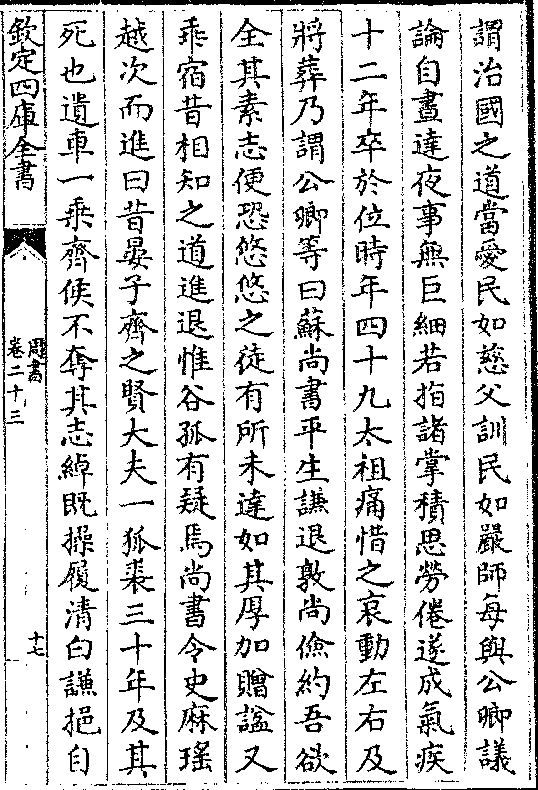 謂治國之道當愛民如慈父訓民如嚴師每與公卿議
論自晝達夜事無巨細若指諸掌積思勞倦遂成氣疾
十二年卒於位時年四十九太祖痛惜之哀動左右及
將葬乃謂公卿等曰蘇尚書平生謙退敦尚儉約吾欲
全其素志便恐悠悠之徒有所未達如其厚加贈諡又
乖宿昔相知之道進退惟谷孤有疑焉尚書令史麻瑤
越次而進曰昔晏子齊之賢大夫一狐裘三十年及其
死也遺車一乘齊侯不奪其志綽既操履清白謙挹自
欽定四庫全書
周書
卷二十三
十七